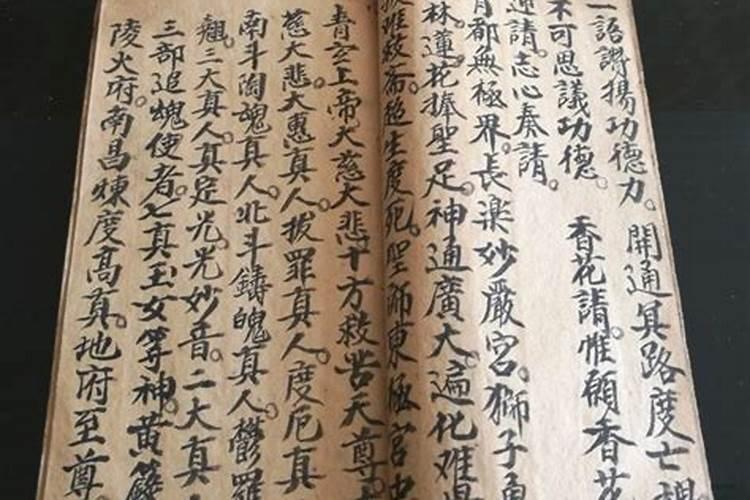 一語謝揚功德力。開通冥路度亡
不可思議功德。香花請。惟願香花
迎請。志心奏請。
青都無極界。長楽妙嚴宮。獅子
林。蓮花捧聖足。神通廣大。遍化難
救斋。超生度死。聖师東極宮中
青玄上帝大慈大悲十方救苦天尊。
慈大悲大惠真人。拔罪真人。度厄真
南斗陶魂真人。北斗鑄魄真人。鬱羅
翹。三大真人。真定光。光妙音。二大真
三部追魂使者。七真玉女等神。黄籙
陵火府。南昌煉度高真。地府至尊。